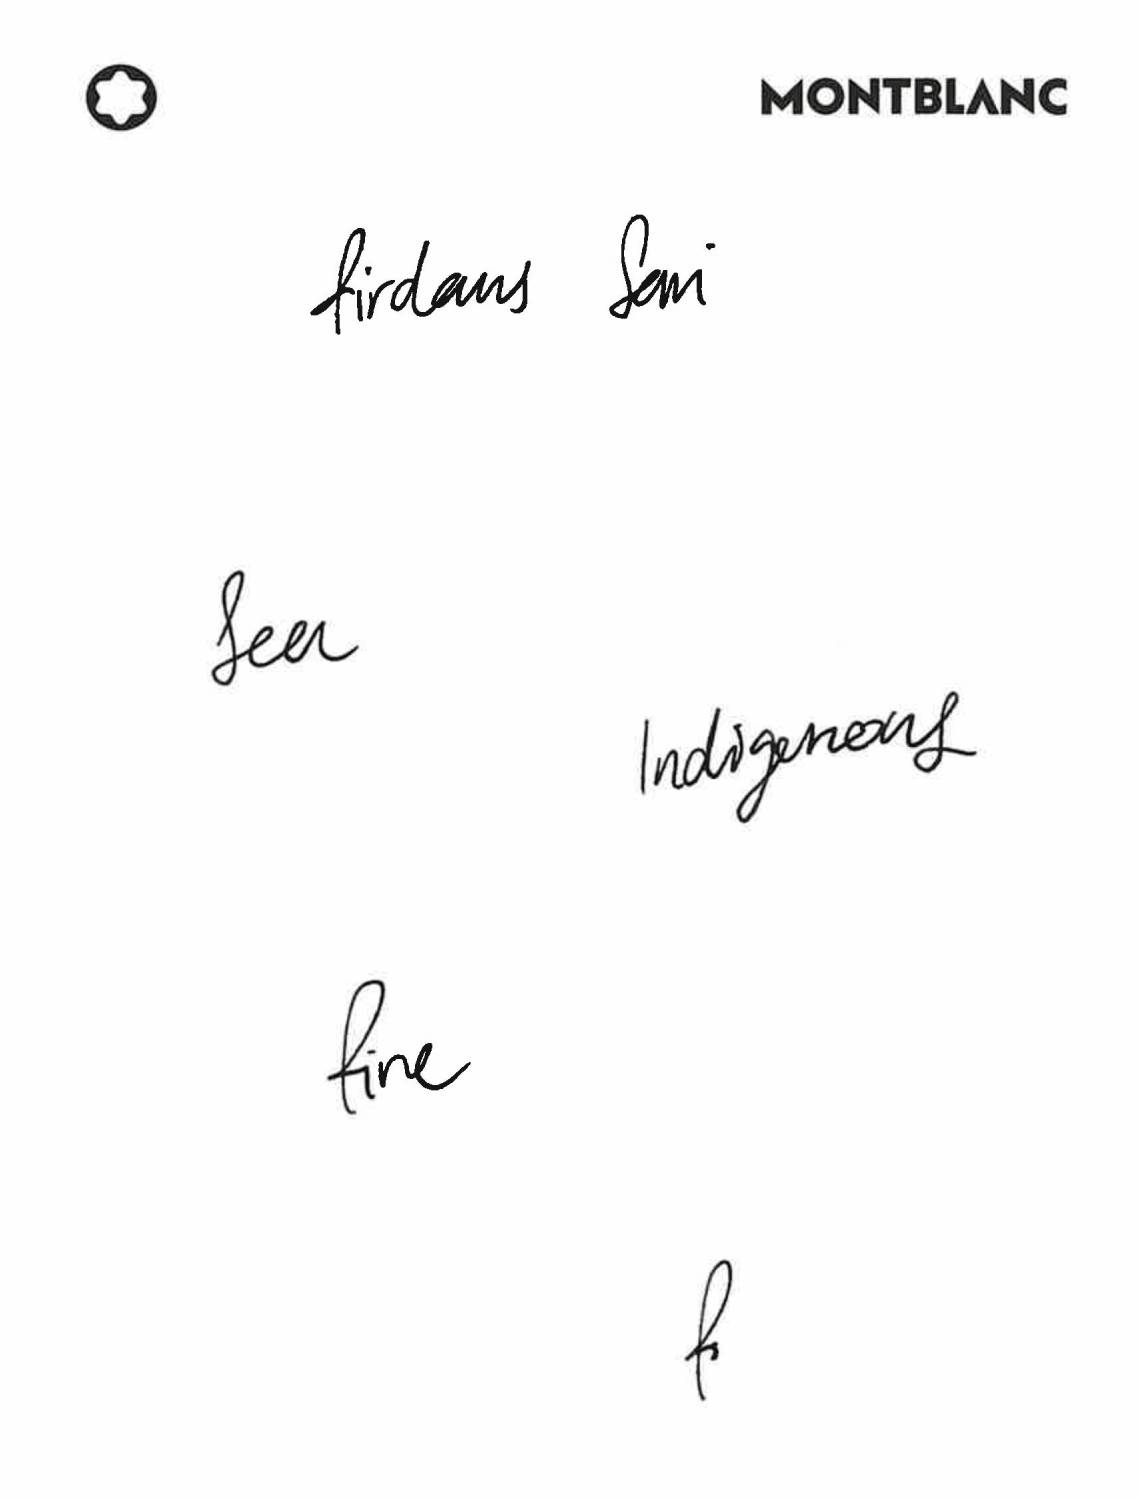 MONTBLANC
firdaus Sani
Seen
Indigenous
fine
f